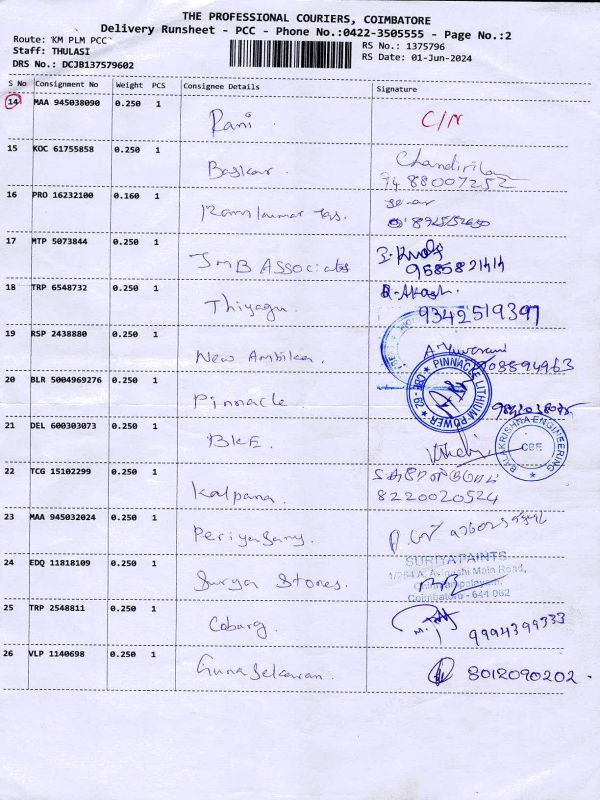 THE PROFESSIONAL COURIERS, COIMBATORE
Delivery Runsheet - PCC - Phone No.:0422-3505555 - Page No.:2
Route: 'KM PLM PCC'
RS No.: 1375796
Staff: THULASI
RS Date: 01-Jun-2024
DRS No.: DCJB137579602
S No Consignment No Weight PCS Consignee Details Signature
14 MAA 945038090 0.250 1 Rani C/N
15 KOC 61755858 0.250 1 Baskar.
Chandirika
94 88007252
16 PRO 16232100 0.160 1 Ramkumar
17 MTP 5073844 0.250 1 JMB ASSociates
9585821414
18 TRP 6548732 0.250 1 Thiyagu.
R. Akash
9342519397
19 RSP 2438880 0.250 1 New Ambika.
20 BLR 5004969276 0.250 1 Pinnacle
PINNACLE LITHIUM POWER ★ CBE - 62 ★
21 DEL 600303073 0.250 1 BKE.
BALAKRISHNA ENGINEERING ★ CBE
22 TCG 15102299 0.250 1 Kalpana.
8220020524
23 MAA 945032024 0.250 1 Periyasamy.
24 EDQ 11818109 0.250 1 Surya Stores.
SURIYA PAINTS
1/254 A, Avinashi Main Road,
Coimbatore - 641 062
25 TRP 2548811 0.250 1 Coburg.
9994399333
26 VLP 1140698 0.250 1 Gunasekaran.
8012090202